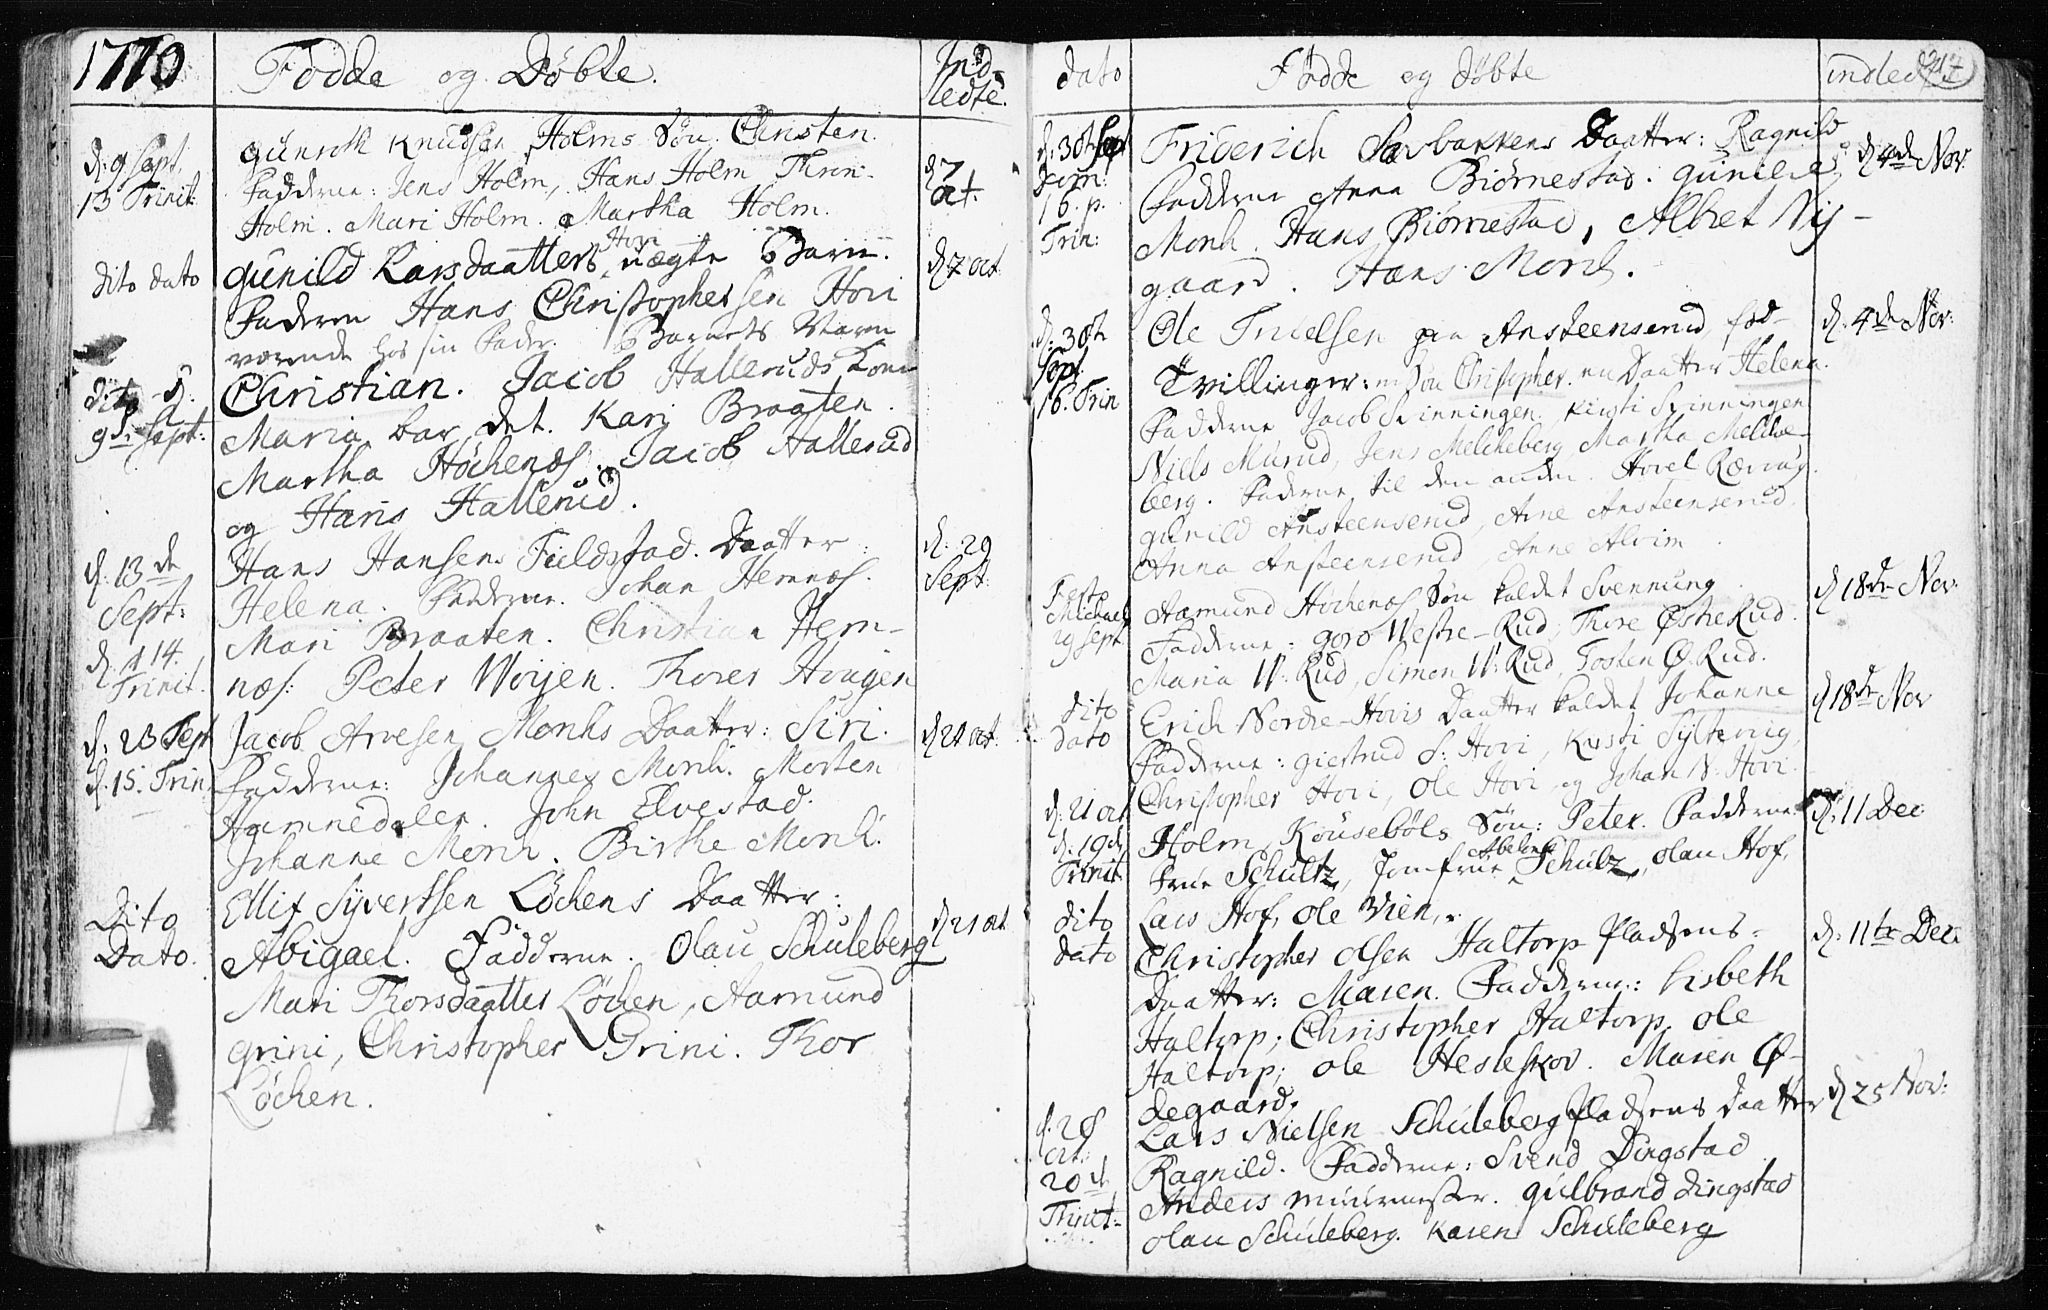 1770
Födde og Döbte.
Ind-
ledte.
d: 9 Sept.
13 Trinit:
Gunroth Knudsen Holms Sön Christen.
Fadderne: Jens Holm, Hans Holm Thron
Holm. Mari Holm. Martha Holm.
d 7
oct.
dito dato
Gunild Larsdaatters Hovi uægte Barn.
Faderen Hans Christophersen Hovi
værende hos sin Fader. Barnets Navn
d 7 oct
dito d.
9de Sept:
Christian. Jacob Halleruds Kone
Maria bar det. Kari Braaten.
Martha Höchenæs. Jacob Hallerud
og Hans Hallerud.
d. 13de
Sept:
d. 14.
Trinit.
Hans Hansens Fuldstad. Daatter
Helena. Fadderne. Johan Hemnæs.
Mari Braaten. Christian Hem-
næs: Peter Woyen. Thorer Hougen
d. 29
Sept:
d. 23 Sept
d. 15. Trin
Jacob Arvesen Monks Daatter: Siri.
Fadderne: Johannes Monk. Morten
Hamnedalen. John Elvestad.
Johanne Monk. Birthe Monk.
d 21 oct
Dito
Dato.
Ellif Syvertsen Löchens Daatter:
Abigael. Fadderne. Olau Schuleberg
Mari Thorsdaatter Löchen, Aamund
Grini, Christopher Grini. Thor
Löchen.
d 21 oct
dato
Födde og döbte
indledte
214
d. 30te Sept
dom:
16. p.
Trin:
Friderich Savbakkens Daatter: Ragnild
Fadderne Anna Biörnestad. Gunild
Monk. Hans Biörnestad, Albret Ny-
gaard. Hans Monk.
d 4de Nov.
d: 30te
Sept.
16. Trin
Ole Troelsen paa Ansteensrud, föd-
Tvillinger: en Sön Christopher. en Daatter Helena.
Fadderne Jacob Skinningen, Kirsti Skinningen
Niels Murud, Jens Melcheberg Martha Melche-
berg. Fadderne til den anden. Hovel
Gunild Ansteensrud, Arne Ansteensrud.
Anna Ansteensrud, Anne Alvim.
d. 4de Nov:
Festo
Michaelis
29 Sept.
Aamund Höchenæs Sön kaldet Svennung.
Fadderne: Goro Westre-Rud, Thore Østre Rud.
Maria W: Rud, Simon W: Rud, Tosten Ø. Rud.
d 18de Nov
dito
dato
Erich Nordre-Hovis Daatter kaldet Johanne
Fadderne: Giertrud S: Hovi, Kirsti Syltevig,
Christopher Hovi, Ole Hovi og Johan N: Hovi.
d 18de Nov
d: 21 oct
d. 19de
Trinit
Holm Kouseböls Sön: Peter. Fadderne
Frue Schultz, Jomfrue Abelone Schultz, Olau Hof,
Lars Hof, Ole Vien,
d. 11 Dec
dito
dato
Christopher Olsen Haltorp Pladsens-
Daatter: Maren. Fadderne: Lisbeth
Haltorp; Christopher Haltorp, Ole
Haltorp; Ole Hesleskov. Maren Ø-
degaard.
d. 11te Dec:
d. 28
oct:
20de
Trinit:
Lars Nielsen Schuleberg Pladsens Daatter
Ragnild. Fadderne: Svend Dingstad
Anders Muurmester. Gulbrand Dingstad
Olau Schuleberg. Karen Schuleberg
d 25 Nov: